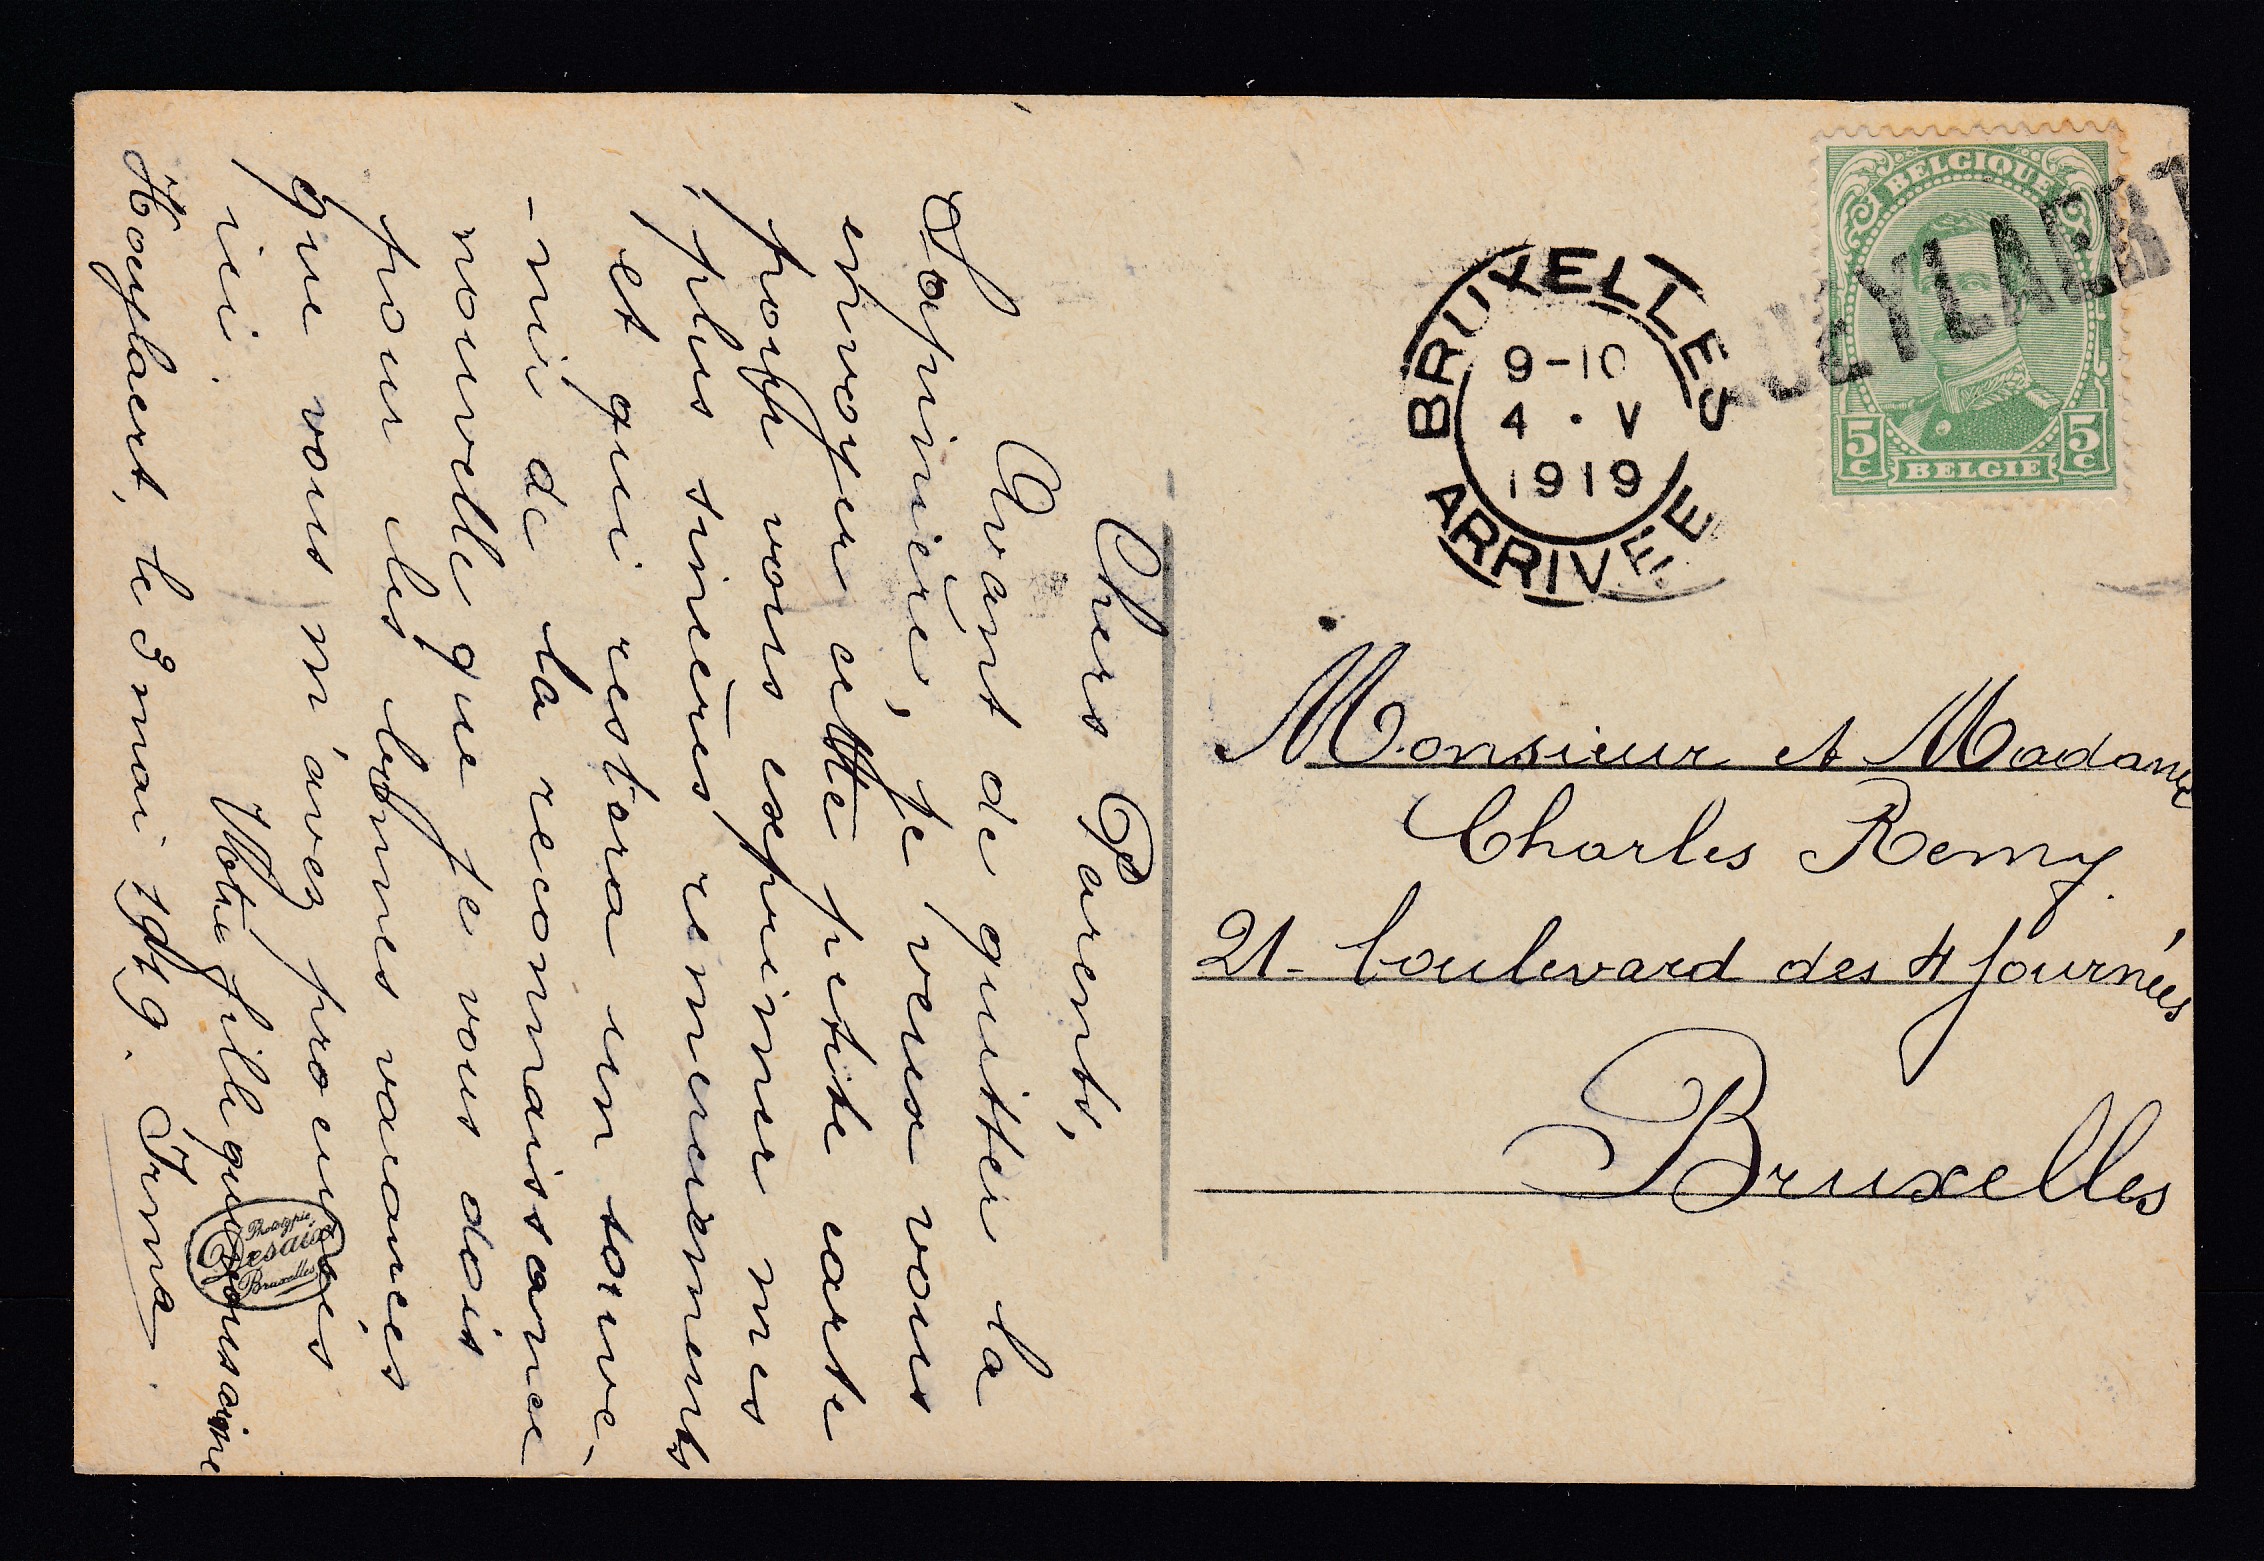 Chers Parents,
Avant de quitter la
Sapinière, je veux vous
envoyer cette petite carte
pour vous exprimer mes
plus sincères remerciements
et qui restera un souve-
-nir de la reconnaissance
nouvelle que je vous dois
pour les bonnes vacances
que vous m'avez procurées
ici.
Votre fille qui
Hoeylaert, le 3 mai 1919. Irma.
Phototypie
Desaix
Bruxelles
BELGIQUE
5c 5c
BELGIE
HOEYLAERT
BRUXELLES
9-10
4 · V
1919
ARRIVÉE
Monsieur et Madame
Charles Remy.
21- boulevard des 4 Journées
Bruxelles